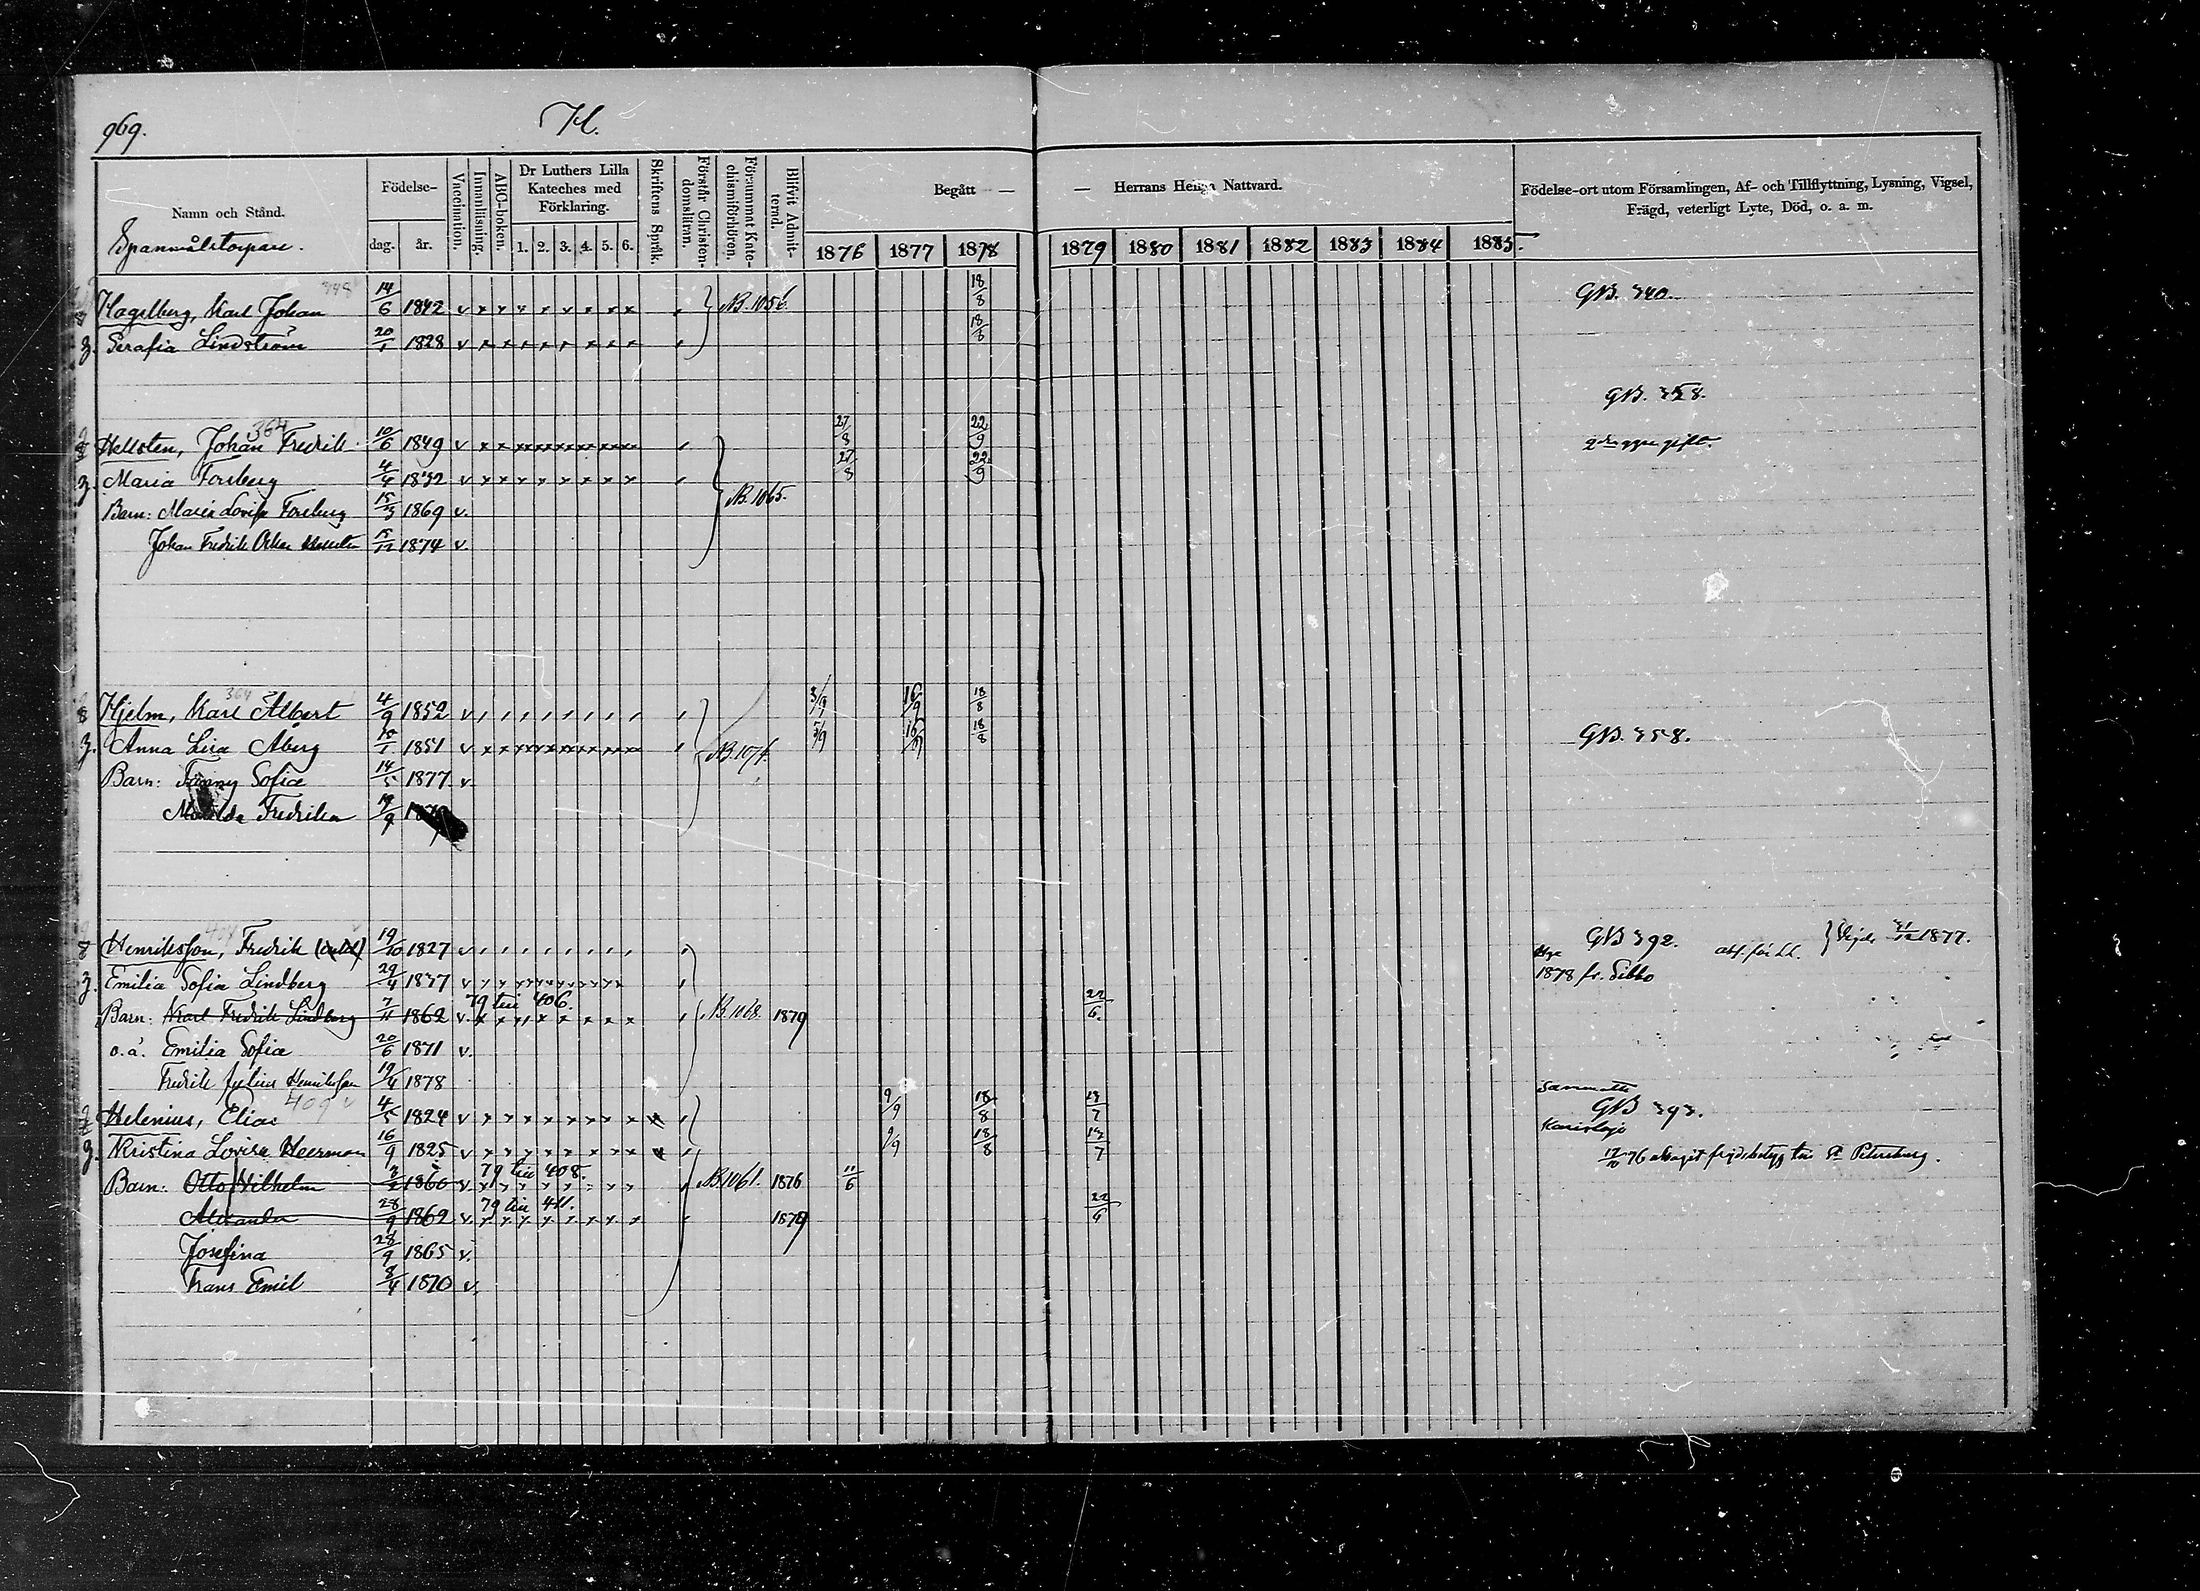 969.
H.
Namn och Stånd.
Spanmålstorpare.
Födelse-
dag. år.
Vaccination.
Innanläsning.
ABC-boken.
Dr Luthers Lilla
Kateches med
Förklaring.
1. 2. 3. 4. 5. 6.
Skriftens Språk.
Förstår Christen-
domsläran.
Försummat Kate-
chismiförhören.
Blifvit Admit-
terad.
Begått — — Herrans Heliga Nattvard.
1876 1877 1878 1879 1880 1881 1882 1883 1884 1885.
Födelse-ort utom Församlingen, Af- och Tillflyttning, Lysning, Vigsel,
Frägd, veterligt Lyte, Död, o. a. m.
348
Hagelberg, Karl Johan 14/6 1842 v N.B. 1056. 18/8 GB. 340.
Serafia Lindström 20/1 1828 v 18/8
GB. 358.
364
Hellsten, Johan Fredrik 10/6 1849 v 27/8 22/9
Maria Forsberg 4/4 1832 v 27/8 22/9
Barn: Maria Lovisa Forsberg 15/3 1869 v. N.B. 1065.
Johan Fredrik Oskar Hellsten 15/12 1874 v.
364
Hjelm, Karl Albert 4/9 1852 v 3/9 16/9 18/8
Anna Lisa Åberg 1851 v 3/9 16/9 18/8 GB. 358.
Barn: Fanny Sofia 14/5 1877 v.
Matilda Fredrika 19/9
Henriksson, Fredrik 19/10 1827 v GB 392. Vigde 1877.
Emilia Sofia Lindberg 29/4 1837 v 1878 fr. Sibbo
79 till 406.
Barn: Karl Fredrik Lindberg 7/11 1862 v. N.B. 1068. 1879 22/6.
o.ä. Emilia Sofia 20/6 1871 v.
Fredrik Julius Henriksson 19/4 1878
409 v
Sammatti
Helenius, Elias 4/5 1824 v 9/9 18/8 13/7 GB 393.
Karislojo
Kristina Lovisa Heerman 16/9 1825 v 9/9 18/8 13/7
79 till 408.
Barn: Otto Wilhelm 1860 v N.B. 1061. 1876 11/6 76 uttagit frejdebetyg till St Petersburg.
79 till 411.
Alexander 28/9 1862 v 1879 22/6
Josefina 28/9 1865 v.
Frans Emil 8/4 1870 v.